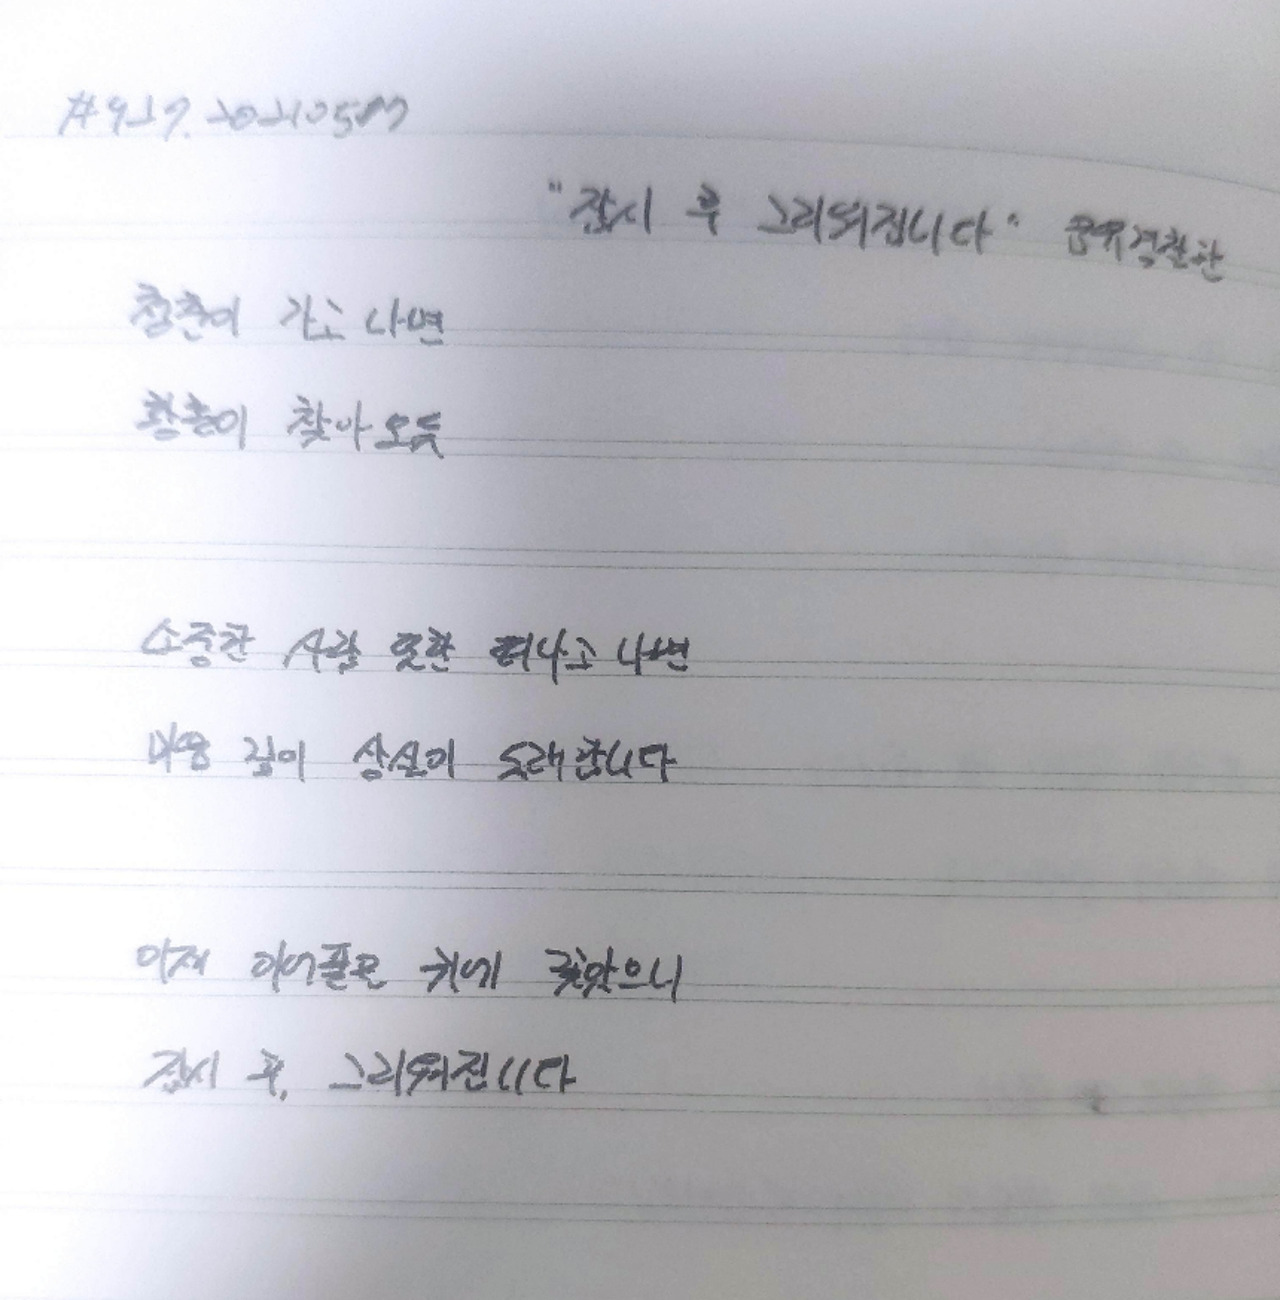 "잠시 후 그리워집니다"
청춘이 가고 나면
황혼이 찾아오듯
소중한 사람 또한 떠나고 나면
마음 깊이 상실이 도래합니다
이제 이어폰을 귀에 꽂았으니
잠시 후, 그리워집니다